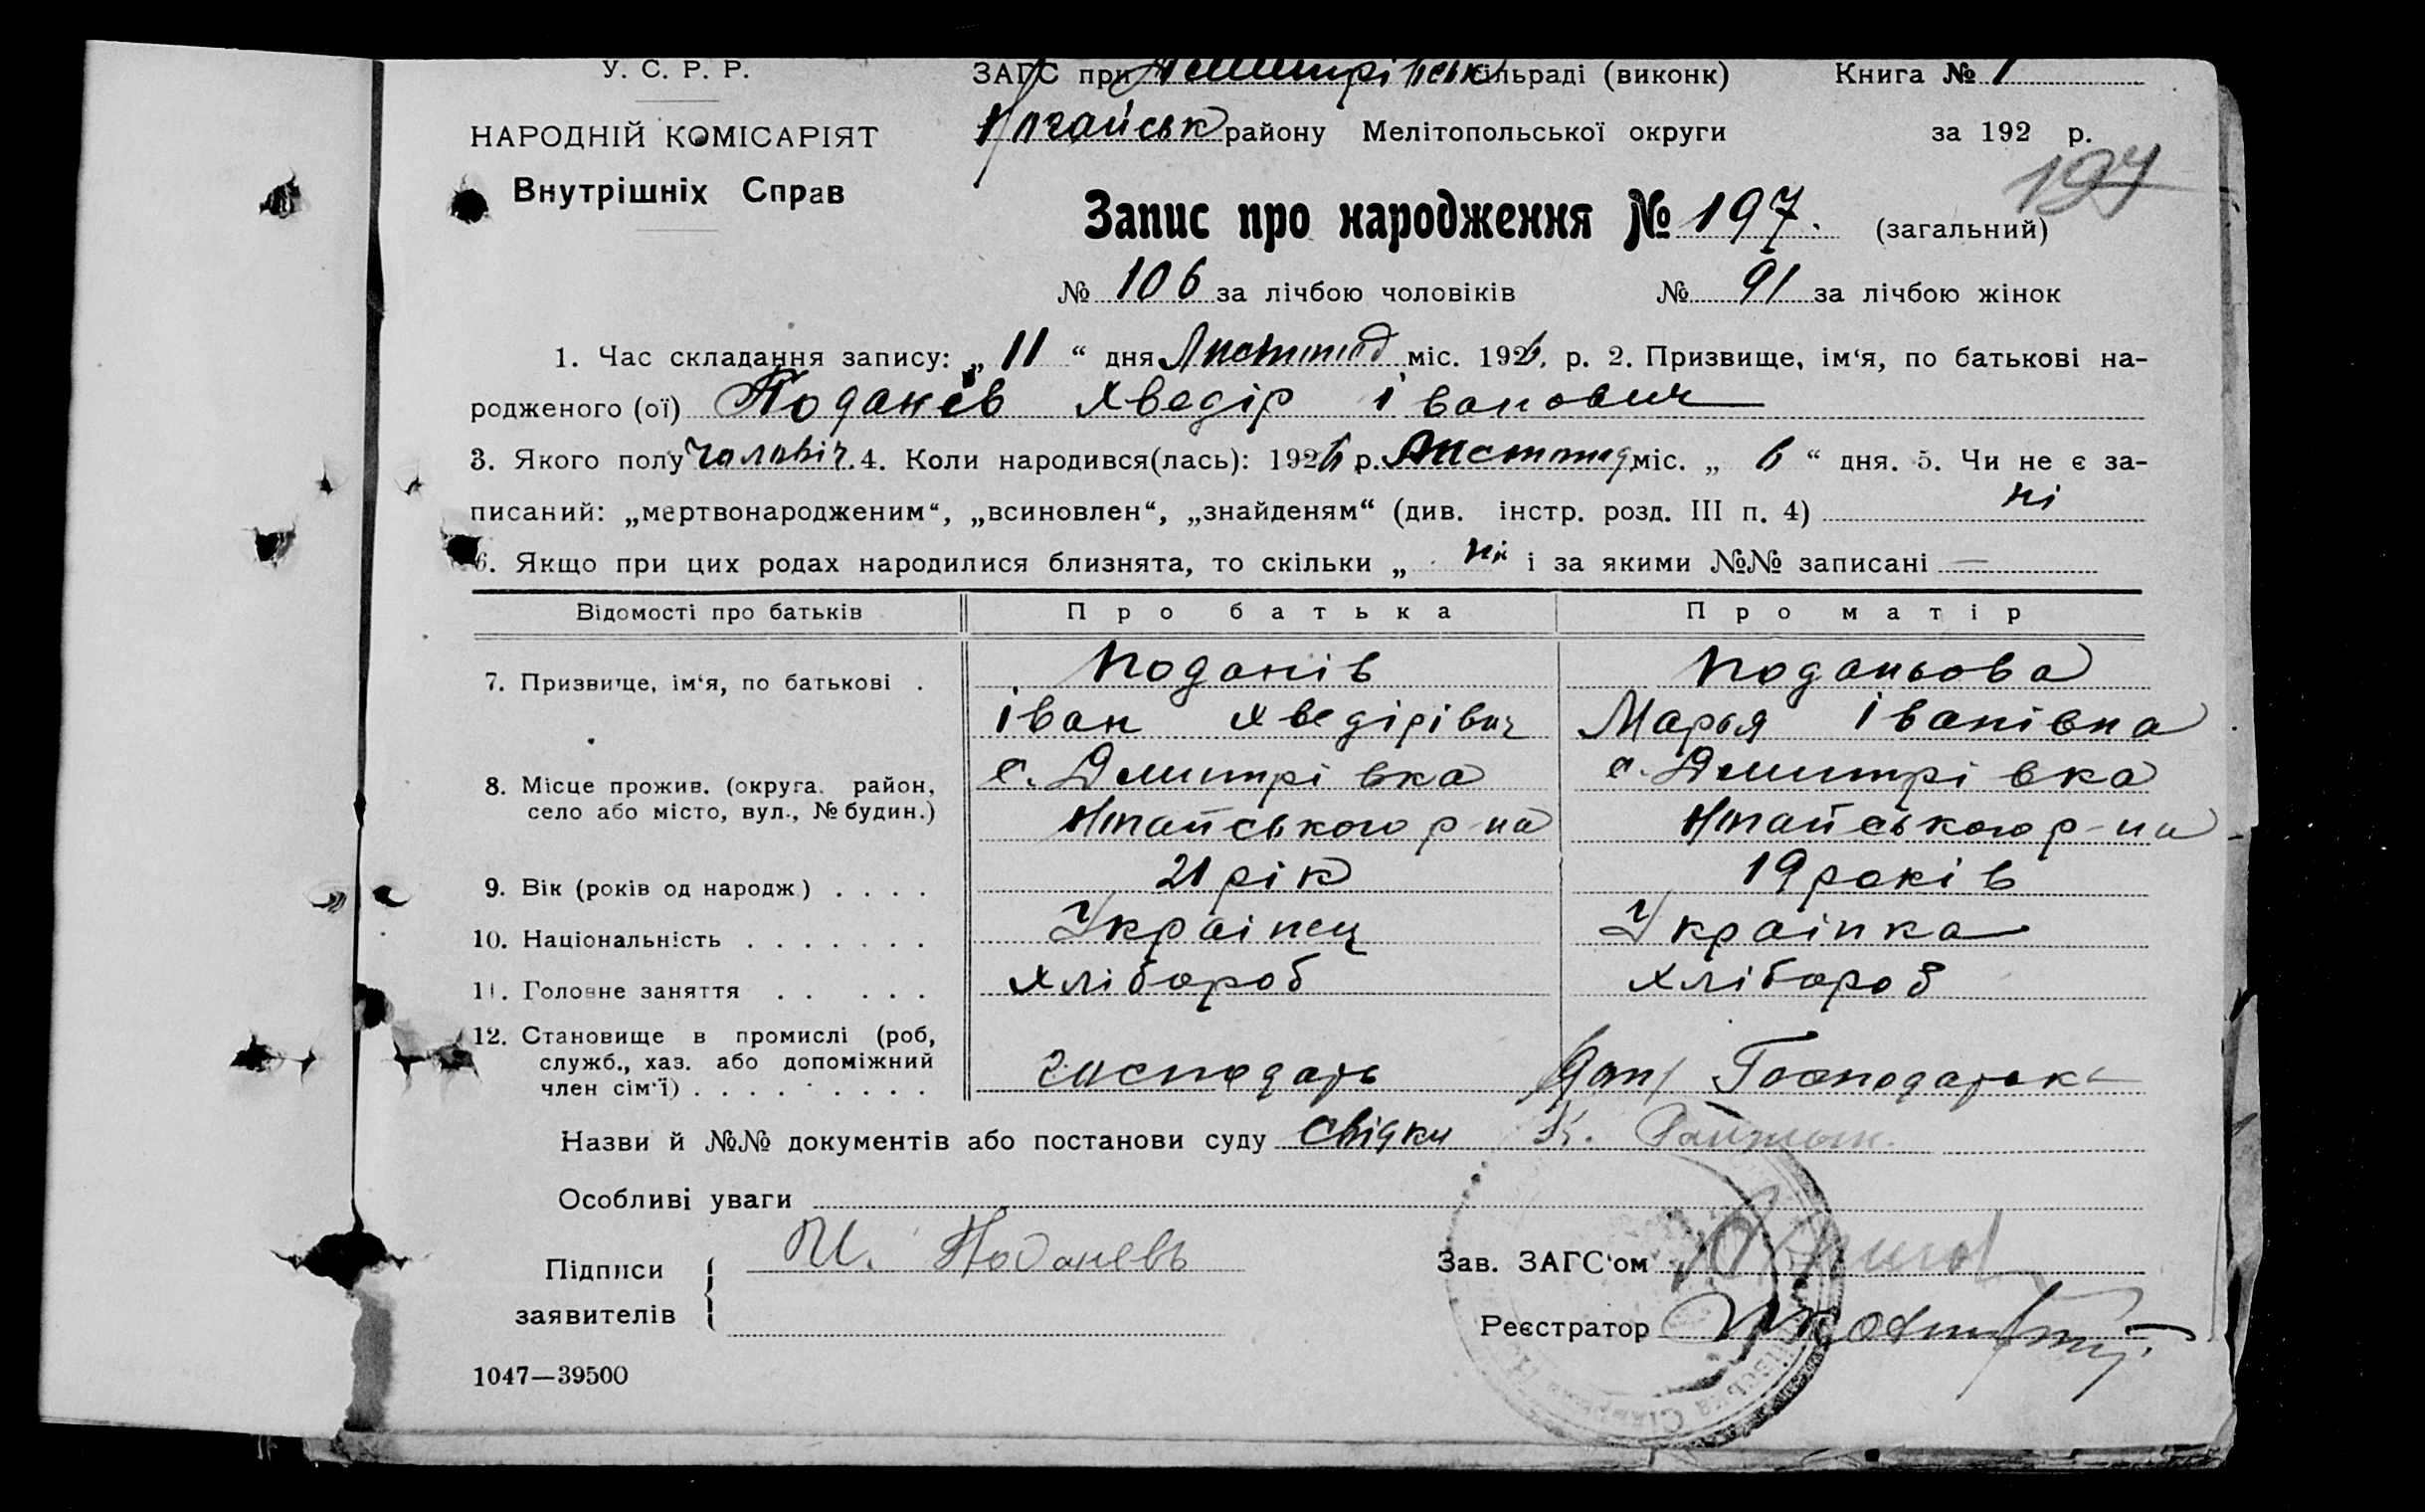 У. С. Р. Р.
ЗАГС при Дмитрівськ сільраді (виконк) Книга № 1
НАРОДНІЙ КОМІСАРІЯТ
Ногайськ району Мелітопольської округи за 192 р.
Внутрішніх Справ
197
Запис про народження № 197. (загальний)
№ 106 за лічбою чоловіків № 91 за лічбою жінок
1. Час складання запису: „ 11 “ дня Листопад міс. 1926, р. 2. Призвище, ім‘я, по батькові на-
родженого (ої) Поданєв Хведір Іванович
3. Якого полу чоловіч. 4. Коли народився(лась): 1926 р. Листопад міс. „ 6 “ дня. 5. Чи не є за-
писаний: „мертвонародженим“, „всиновлен“, „знайденям“ (див. інстр. розд. III п. 4) ні
6. Якщо при цих родах народилися близнята, то скільки „ ні і за якими №№ записані —
Відомості про батьків Про батька Про матір
7. Призвище, ім‘я, по батькові . Поданів Поданьова
Іван Хведірівич Марья Іванівна
8. Місце прожив. (округа. район, с. Дмитрівка с. Дмитрівка
село або місто, вул., № будин.) Нгайського р-на Нгайського р-на
9. Вік (років од народж.) . . . . 21 рік 19 років
10. Національність . . . . . . . Українец Українка
11. Головне заняття . . . . . Хлібороб Хлібороб
12. Становище в промислі (роб,
служб., хаз. або допоміжний
член сім‘ї) . . . . . . . . . господарь Господарька
Назви й №№ документів або постанови суду Свідки К.
Особливі уваги
Підписи И. Поданевъ Зав. ЗАГС‘ом
заявителів Реєстратор
1047—39500